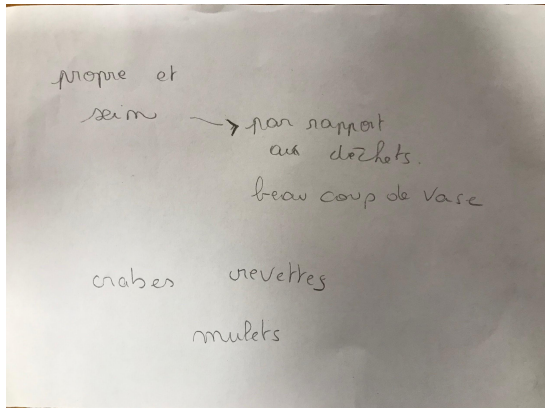 propre et
sein → par rapport
aux déchets.
beau coup de vase
crabes crevettes
mulets